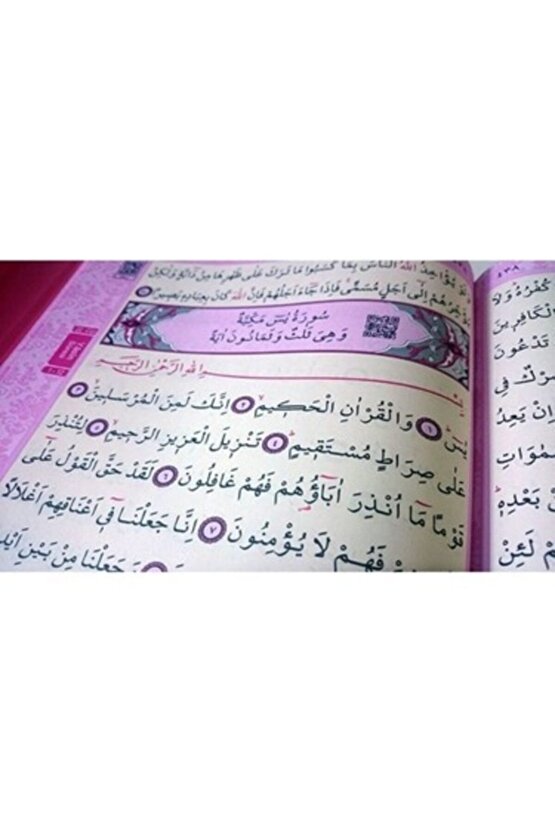 يُؤَاخِذُ اللّٰهُ النَّاسَ بِمَا كَسَبُوا مَا تَرَكَ عَلٰى ظَهْرِهَا مِنْ دَٓابَّةٍ وَلٰكِنْ
يُؤَخِّرُهُمْ اِلٰٓى اَجَلٍ مُسَمًّى فَاِذَا جَٓاءَ اَجَلُهُمْ فَاِنَّ اللّٰهَ كَانَ بِعِبَادِهٖ بَصِيرًا
سُورَةُ يٰسٓ مَكِّيَّةٌ
وَهِىَ ثَلٰثٌ وَثَمَانُونَ اٰيَةً
اللّٰهِ الرَّحْمٰنِ الرَّحِيمِ
يٰسٓ ۝١ وَالْقُرْاٰنِ الْحَكِيمِ ۝٢ اِنَّكَ لَمِنَ الْمُرْسَلِينَ ۝٣
عَلٰى صِرَاطٍ مُسْتَقِيمٍ ۝٤ تَنْزِيلَ الْعَزِيزِ الرَّحِيمِ ۝٥ لِتُنْذِرَ
قَوْمًا مَٓا اُنْذِرَ اٰبَٓاؤُ۬هُمْ فَهُمْ غَافِلُونَ ۝٦ لَقَدْ حَقَّ الْقَوْلُ عَلٰٓى
فَهُمْ لَا يُؤْمِنُونَ ۝٧ اِنَّا جَعَلْنَا فٖٓى اَعْنَاقِهِمْ اَغْلَالًا
وَجَعَلْنَا مِنْ بَيْنِ
٤٣٨
كُفْرُهُ وَلَا
الْكَافِرِينَ
تَدْعُونَ
شِرْكٌ فِى
اَنْ يَعِدُ
بَعْدِهٖ
لَئِنْ